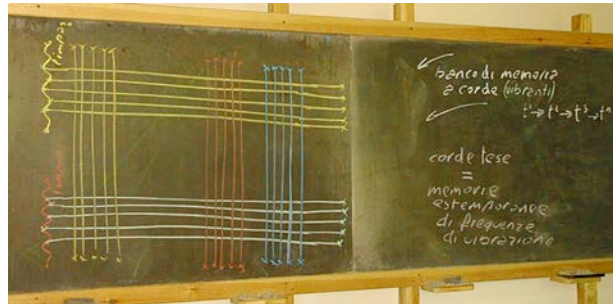 banco di memoria
a corde (vibranti)
t¹→t²→t³→tⁿ
corde tese
=
memorie
estemporanee
di frequenze
di vibrazione